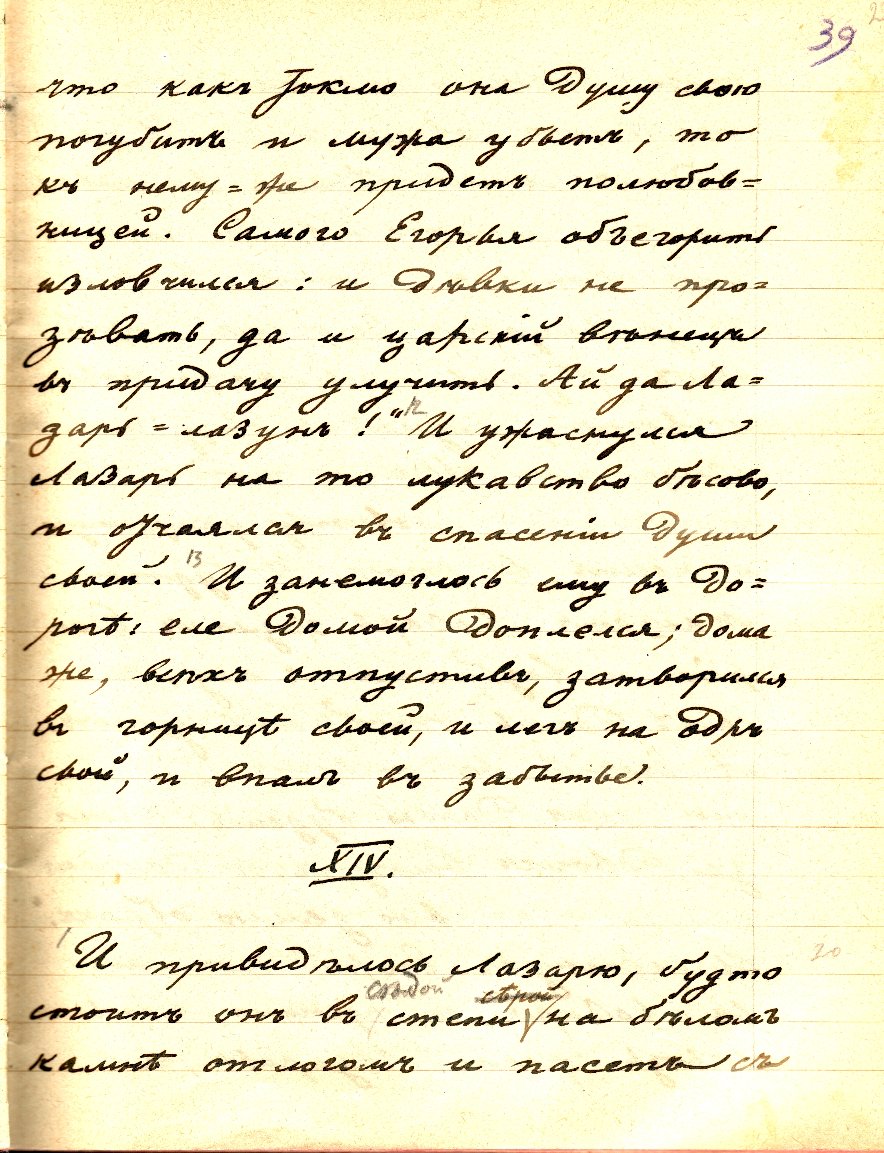 39
что какъ токмо она душу свою
погубитъ и мужа убьетъ, то
къ нему=же придетъ полюбов=
ницей. Самого Егорья объегорить
изловчился: и дѣвки не про=
зѣвать, да и царскій вѣнецъ
въ придачу улучить. Ай да Ла=
зарь=лазунъ!" 12 И ужаснулся
Лазарь на то лукавство бѣсово,
и отчаялся въ спасеніи души
своей. 13 И занемоглось ему въ до=
рогѣ: еле домой доплелся; дома
же, всѣхъ отпустивъ, затворился
въ горницѣ своей, и легъ на одръ
свой, и впалъ въ забытье.
XIV.
1 И привидѣлось Лазарю, будто 20
сѣдой сѣрой
стоитъ онъ въ степи на бѣломъ
камнѣ отлогомъ и пасетъ съ